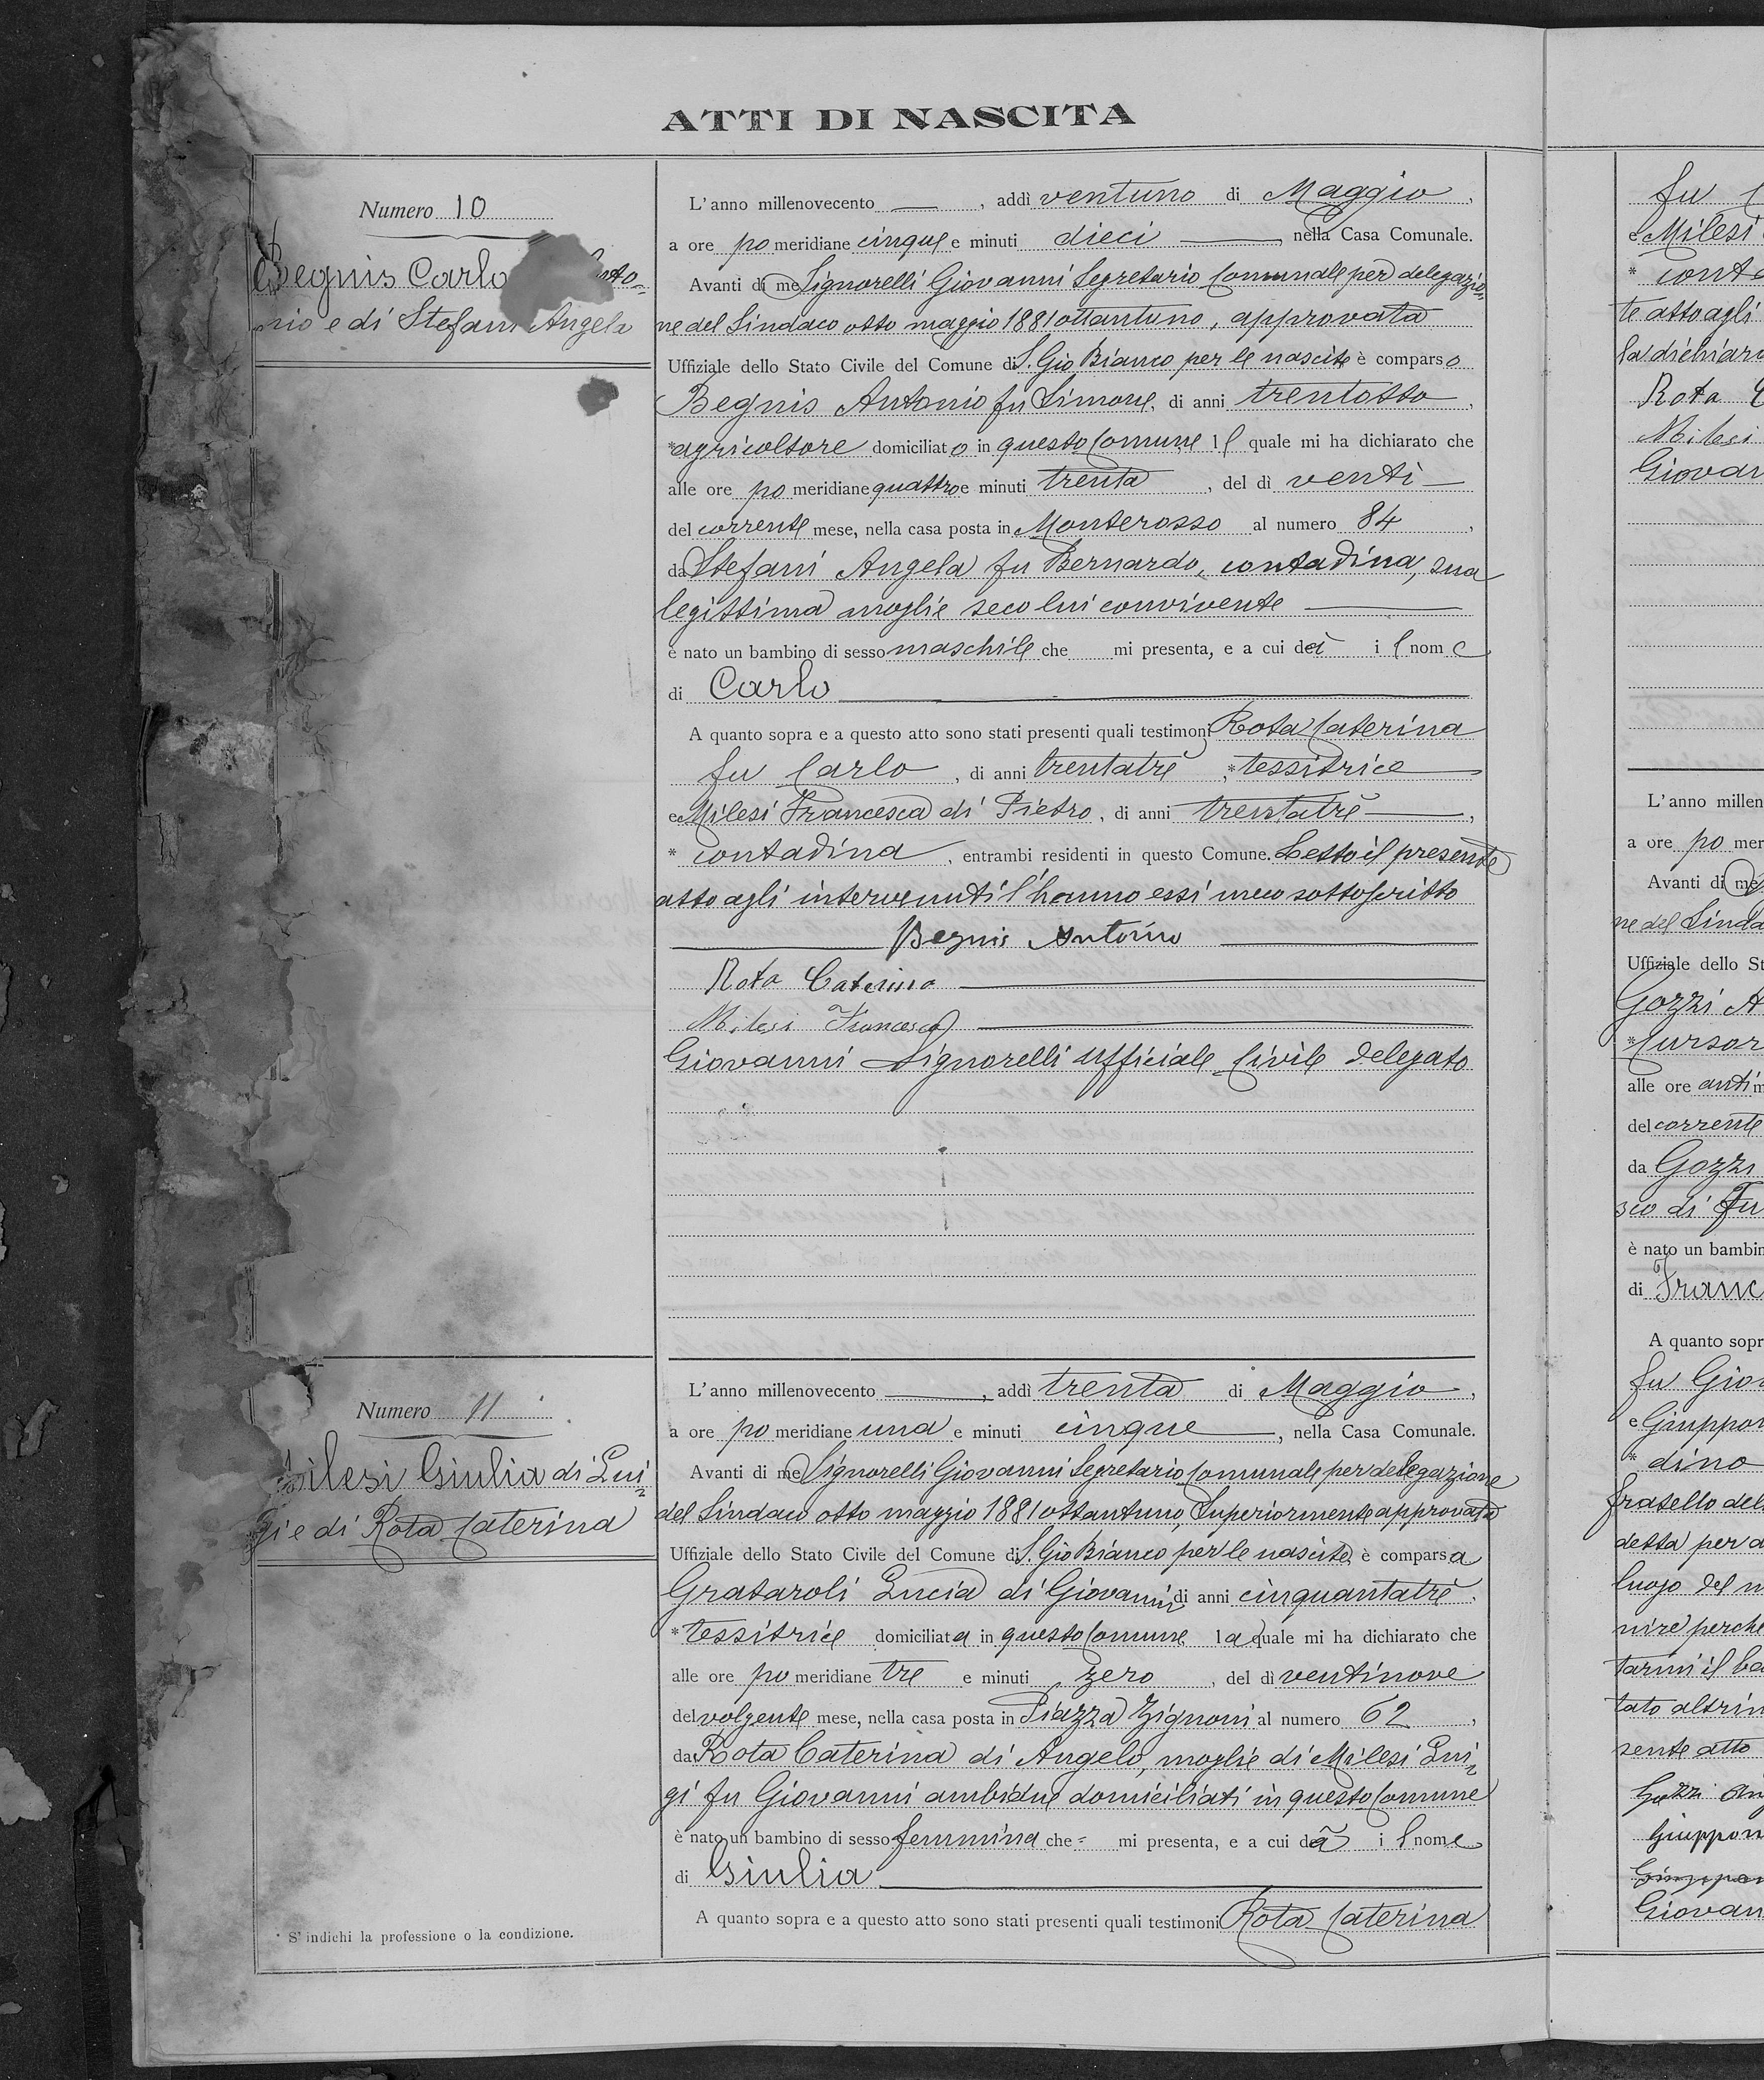 ATTI DI NASCITA
Numero 10
Begnis Carlo
nio e di Stefani Angela
L'anno millenovecento —, addì ventuno di Maggio,
a ore po meridiane cinque e minuti dieci —, nella Casa Comunale.
Avanti di me Signorelli Giovanni Segretario Comunale per delegazio-
ne del Sindaco otto maggio 1881 ottantuno, approvata
Uffiziale dello Stato Civile del Comune di S. Gio Bianco per le nascite è comparso
Begnis Antonio fu Simone, di anni trentotto,
*agricoltore domiciliato in questo Comune il quale mi ha dichiarato che
alle ore po meridiane quattro e minuti trenta, del dì venti —
del corrente mese, nella casa posta in Monterosso al numero 84,
da Stefani Angela fu Bernardo, contadina, sua
legittima moglie seco lui convivente —
è nato un bambino di sesso maschile che mi presenta, e a cui dà il nome
di Carlo —
A quanto sopra e a questo atto sono stati presenti quali testimoni Rota Caterina
fu Carlo, di anni trentatrè, *tessitrice
e Milesi Francesca di Pietro, di anni trentatrè —,
* contadina, entrambi residenti in questo Comune. Letto il presente
atto agli intervenuti l'hanno essi meco sottoscritto
— Begnis Antonio —
Rota Caterina —
Milesi Francesca —
Giovanni Signorelli ufficiale Civile delegato
Numero 11
Milesi Giulia di Lui-
gi e di Rota Caterina
L'anno millenovecento —, addì trenta di Maggio,
a ore po meridiane una e minuti cinque —, nella Casa Comunale.
Avanti di me Signorelli Giovanni Segretario Comunale per delegazione
del Sindaco otto maggio 1881 ottantuno, Superiormente approvata
Uffiziale dello Stato Civile del Comune di S. Gio Bianco per le nascite, è comparsa
Grataroli Lucia di Giovanni di anni cinquantatrè.
*tessitrice domiciliata in questo Comune la quale mi ha dichiarato che
alle ore po meridiane tre e minuti zero, del dì ventinove
del volgente mese, nella casa posta in Piazza Zignoni al numero 62,
da Rota Caterina di Angelo, moglie di Milesi Lui-
gi fu Giovanni ambidue domiciliati in questo Comune
è nato un bambino di sesso femmina che = mi presenta, e a cui dà il nome
di Giulia —
A quanto sopra e a questo atto sono stati presenti quali testimoni Rota Caterina
* S'indichi la professione o la condizione.
fu
e Milesi
* conta
te atto agli
la dichiara
Rota
Milesi
Giovan
L'anno millen
a ore po mer
Avanti di me
ne del Sinda
Uffiziale dello St
Gozzi A
*Cursor
alle ore anti m
del corrente
da Gozzi
sco di Fu
è nato un bambin
di Franc
A quanto sopr
fu Giov
e Giuppon
* dino
fratello del
detta per a
luogo del n
nire perchè
tarmi il ba
tato altrim
sente atto
Gozzi An
Giuppon
Giovan